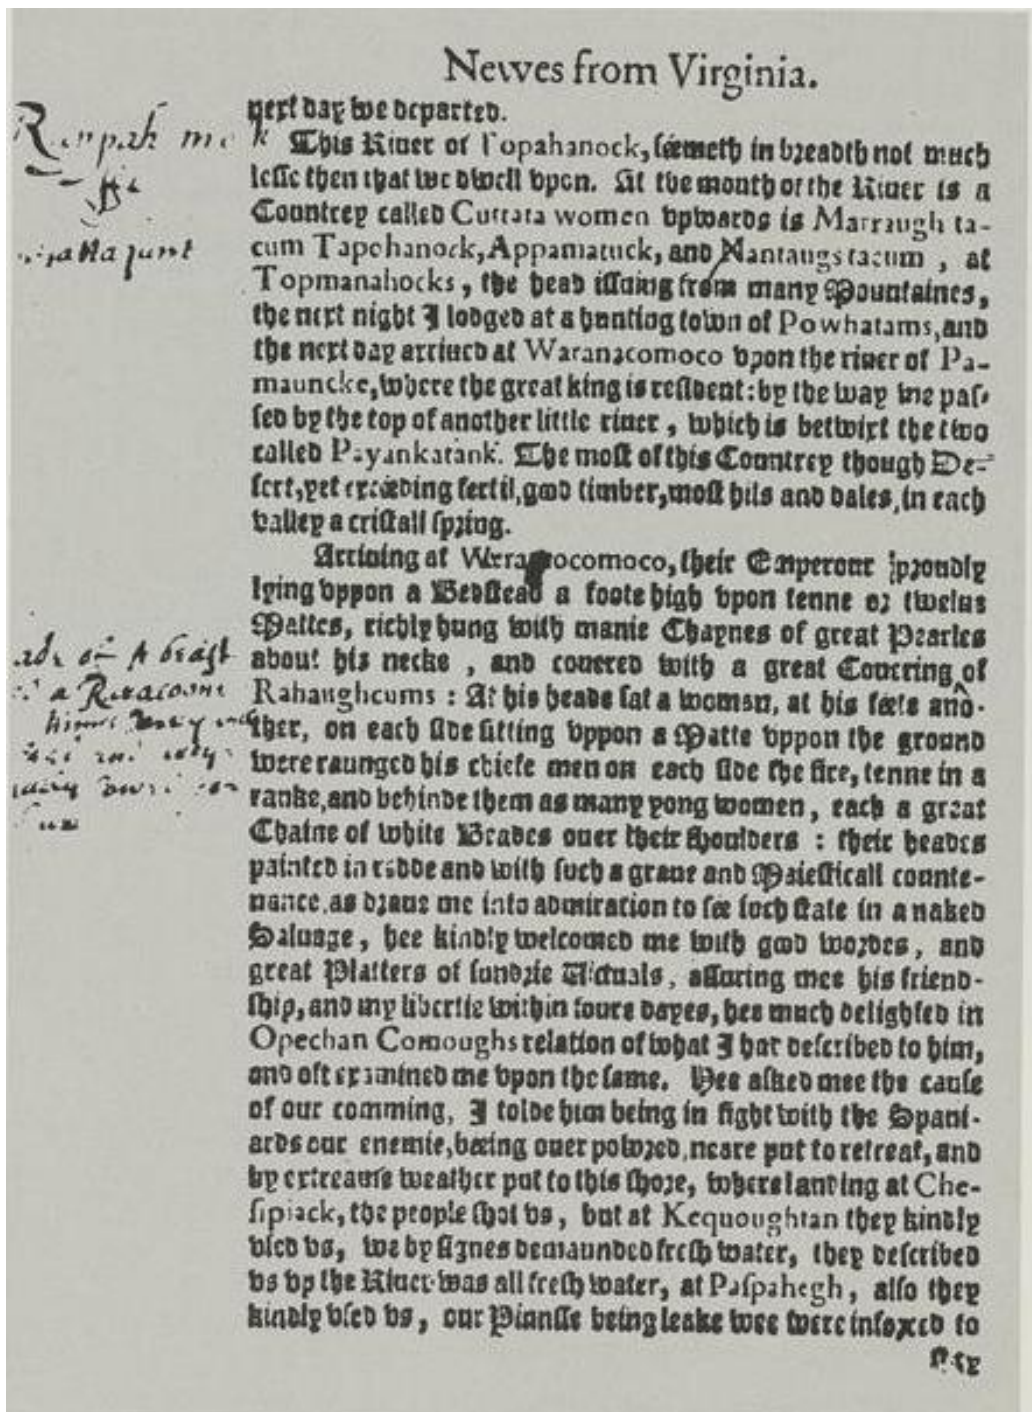 Newes from Virginia.
next day we departed.
This River of Topahanock, seemeth in breadth not much
lesse then that we dwell vpon. At the mouth of the Riuer is a
Countrey called Cuttata women vpwards is Marraugh ta-
cum Tapohanock, Appamatuck, and Nantaugs tacum, at
Topmanahocks, the head issuing from many Mountaines,
the next night I lodged at a hunting town of Powhatams, and
the next day arriued at Waranacomoco vpon the riuer of Pa-
mauncke, where the great king is resident: by the way we pas-
sed by the top of another little riuer, which is betwixt the two
called Payankatank. The most of this Countrey though De-
sert, yet exceeding fertil, good timber, most hils and dales, in each
valley a cristall spring.
Arriving at Weramocomoco, their Emperour proudly
lying vppon a Bedstead a foote high vpon tenne or twelue
Mattes, richly hung with manie Chaynes of great Pearles
about his necke, and couered with a great Couering of
Rahaughcums: At his heade sat a woman, at his feete ano-
ther, on each side sitting vppon a Matte vppon the ground
were raunged his chiefe men on each side the fire, tenne in a
ranke, and behinde them as many yong women, each a great
Chaine of white Beades ouer their shoulders: their heades
painted in redde and with such a graue and Maiesticall counte-
nance, as draue me into admiration to see such state in a naked
Saluage, hee kindly welcomed me with good wordes, and
great Platters of sundrie Victuals, assuring mee his friend-
ship, and my libertie within foure dayes, hee much delighted in
Opechan Comoughs relation of what I had described to him,
and oft examined me vpon the same. Hee asked mee the cause
of our comming, I tolde him being in fight with the Spani-
ards our enemie, beeing ouer powred, neare put to retreat, and
by extreame weather put to this shore, where landing at Che-
sipiack, the people shot vs, but at Kequoughtan they kindly
vsed vs, we by signes demaunded fresh water, they described
vs vp the Riuer was all fresh water, at Paspahegh, also they
kindly vsed vs, our Pinnsse being leake wee were inforced to
stay